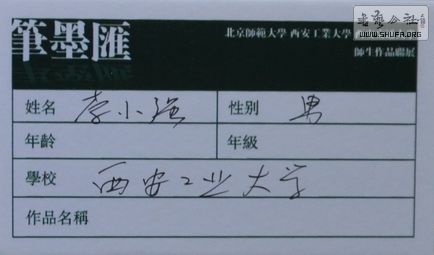 書法公社
WWW.SHUFA.ORG
筆墨匯
北京師範大學 西安工業大學
師生作品聯展
姓名 李小强 性別 男
年齡 年級
學校 西安工业大学
作品名稱